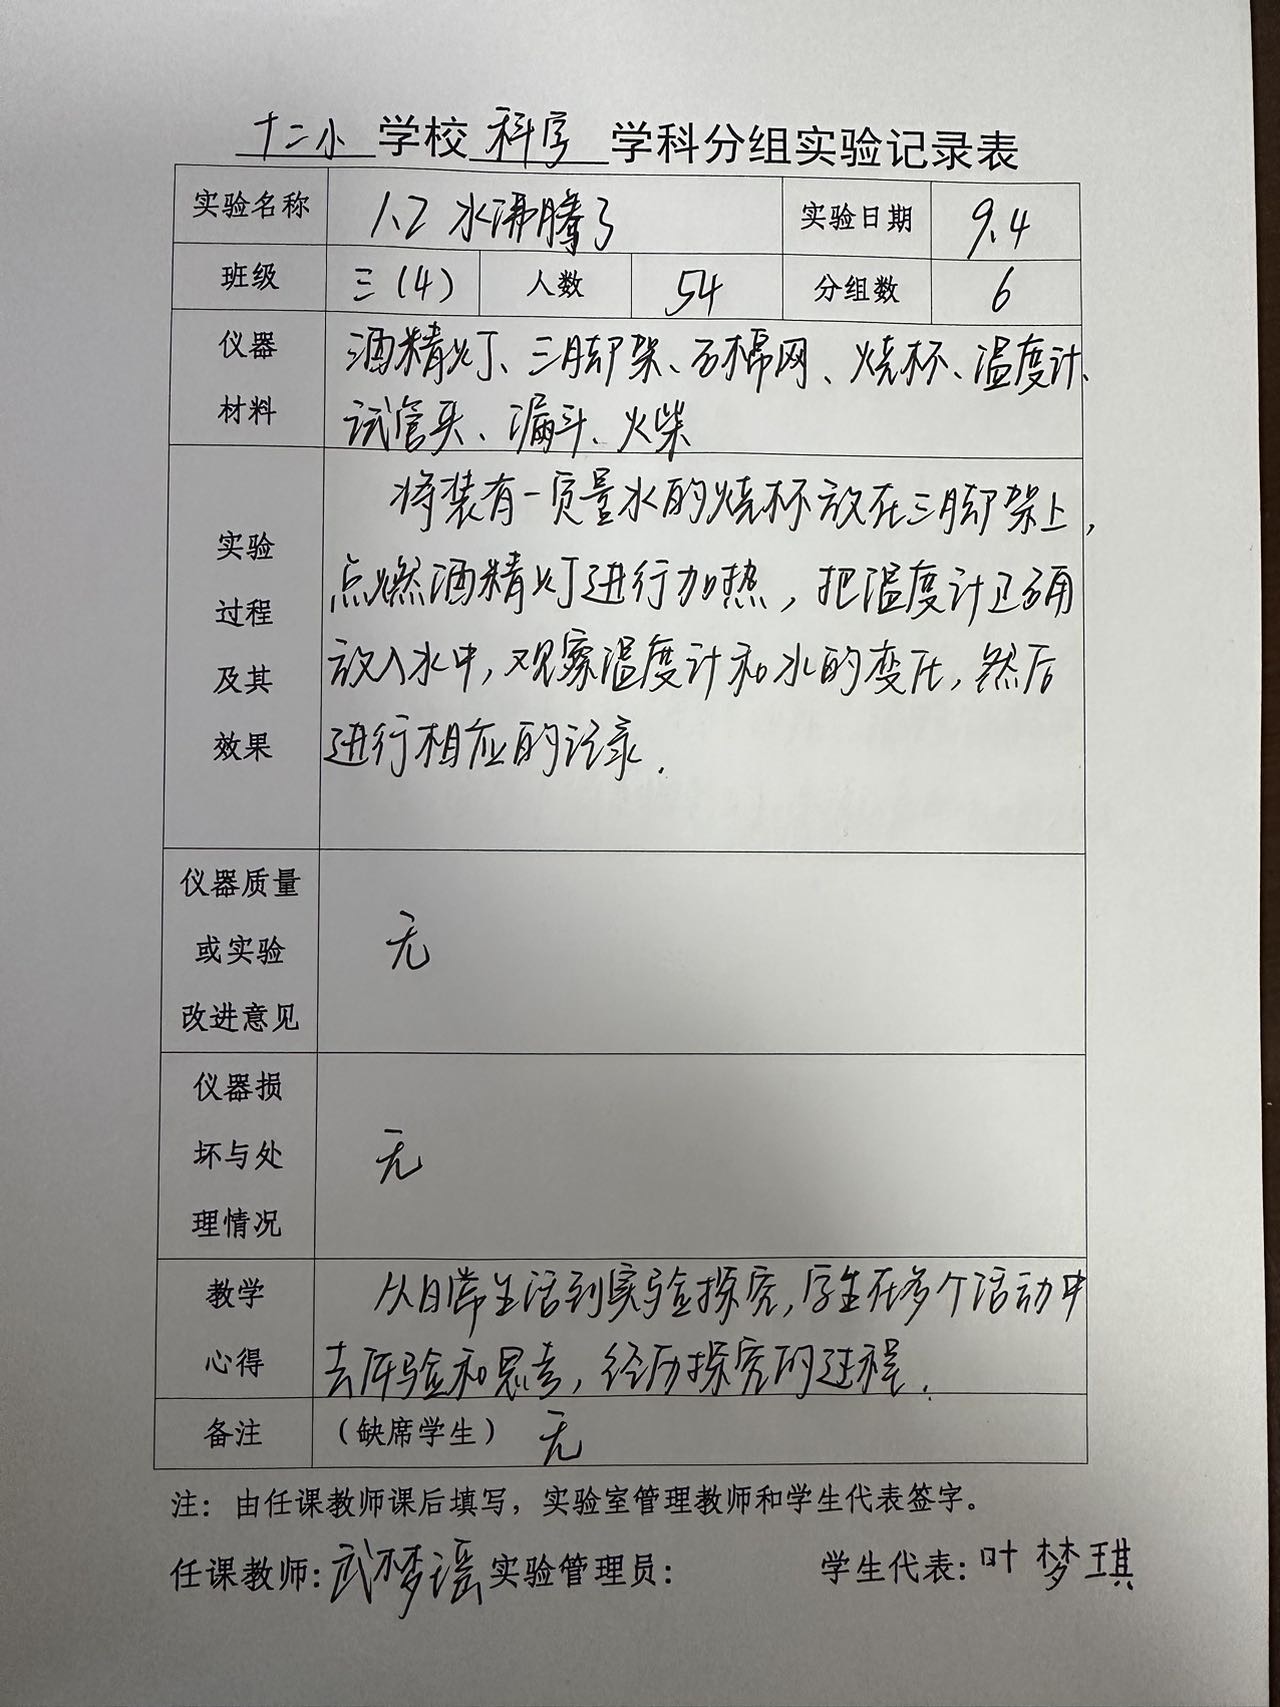 十二小 学校 科学 学科分组实验记录表
实验名称 1.2 水沸腾了 实验日期 9.4
班级 三(4) 人数 54 分组数 6
仪器 酒精灯、三脚架、石棉网、烧杯、温度计、
材料 试管夹、漏斗、火柴
将装有一定量水的烧杯放在三脚架上,
实验 点燃酒精灯进行加热,把温度计正确
过程 放入水中,观察温度计和水的变化,然后
及其 进行相应的记录.
效果
仪器质量
或实验 无
改进意见
仪器损
坏与处 无
理情况
教学 从日常生活到实验探究,学生在多个活动中
心得 去体验和思考,经历探究的过程.
备注 (缺席学生) 无
注:由任课教师课后填写,实验室管理教师和学生代表签字。
任课教师:武梦谣 实验管理员: 学生代表:叶梦琪